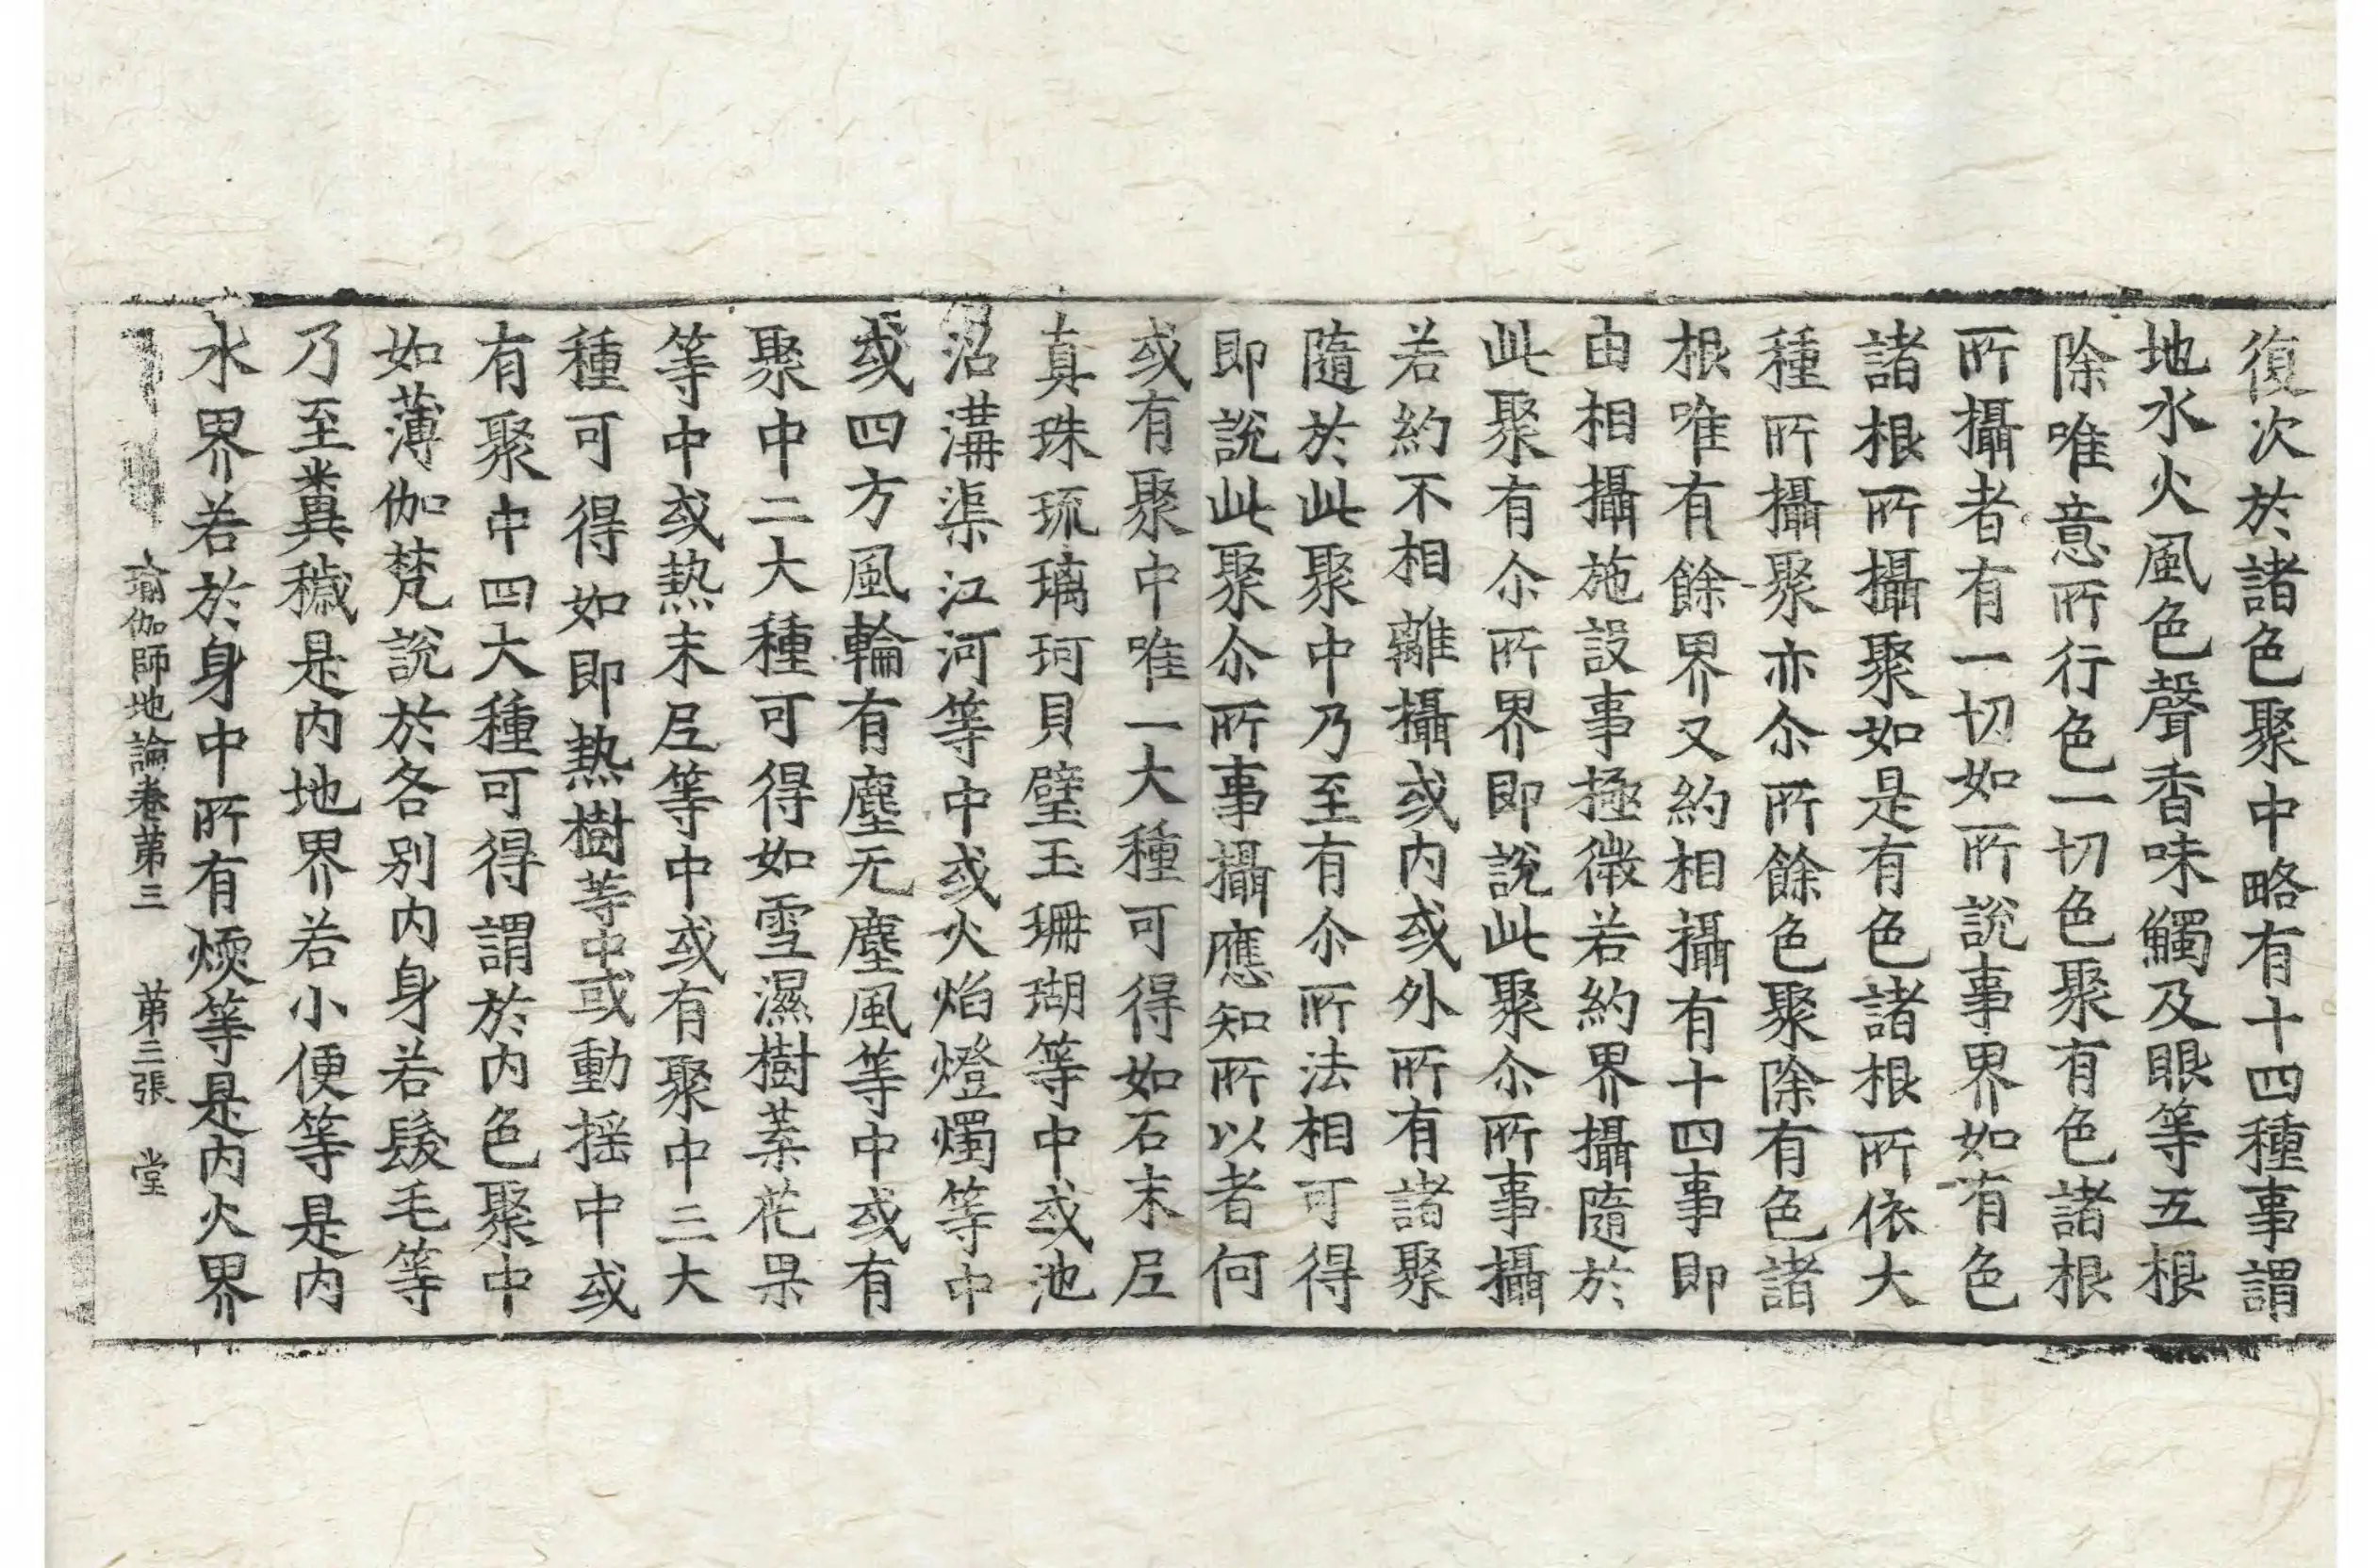 復次於諸色聚中略有十四種事謂
地水火風色聲香味觸及眼等五根
除唯意所行色一切色聚有色諸根
所攝者有一切如所說事界如有色
諸根所攝聚如是有色諸根所依大
種所攝聚亦尒所餘色聚除有色諸
根唯有餘界又約相攝有十四事即
由相攝施設事極微若約界攝隨於
此聚有尒所界即說此聚尒所事攝
若約不相離攝或內或外所有諸聚
隨於此聚中乃至有尒所法相可得
即說此聚尒所事攝應知所以者何
或有聚中唯一大種可得如石末尼
真珠琉璃珂貝璧玉珊瑚等中或池
沼溝渠江河等中或火焰燈燭等中
或四方風輪有塵无塵風等中或有
聚中二大種可得如雪濕樹葉花果
等中或熱末尼等中或有聚中三大
種可得如即熱樹等中或動搖中或
有聚中四大種可得謂於內色聚中
如薄伽梵說於各別內身若髮毛等
乃至糞穢是內地界若小便等是內
水界若於身中所有煖等是內火界
瑜伽師地論卷第三 第三張 堂